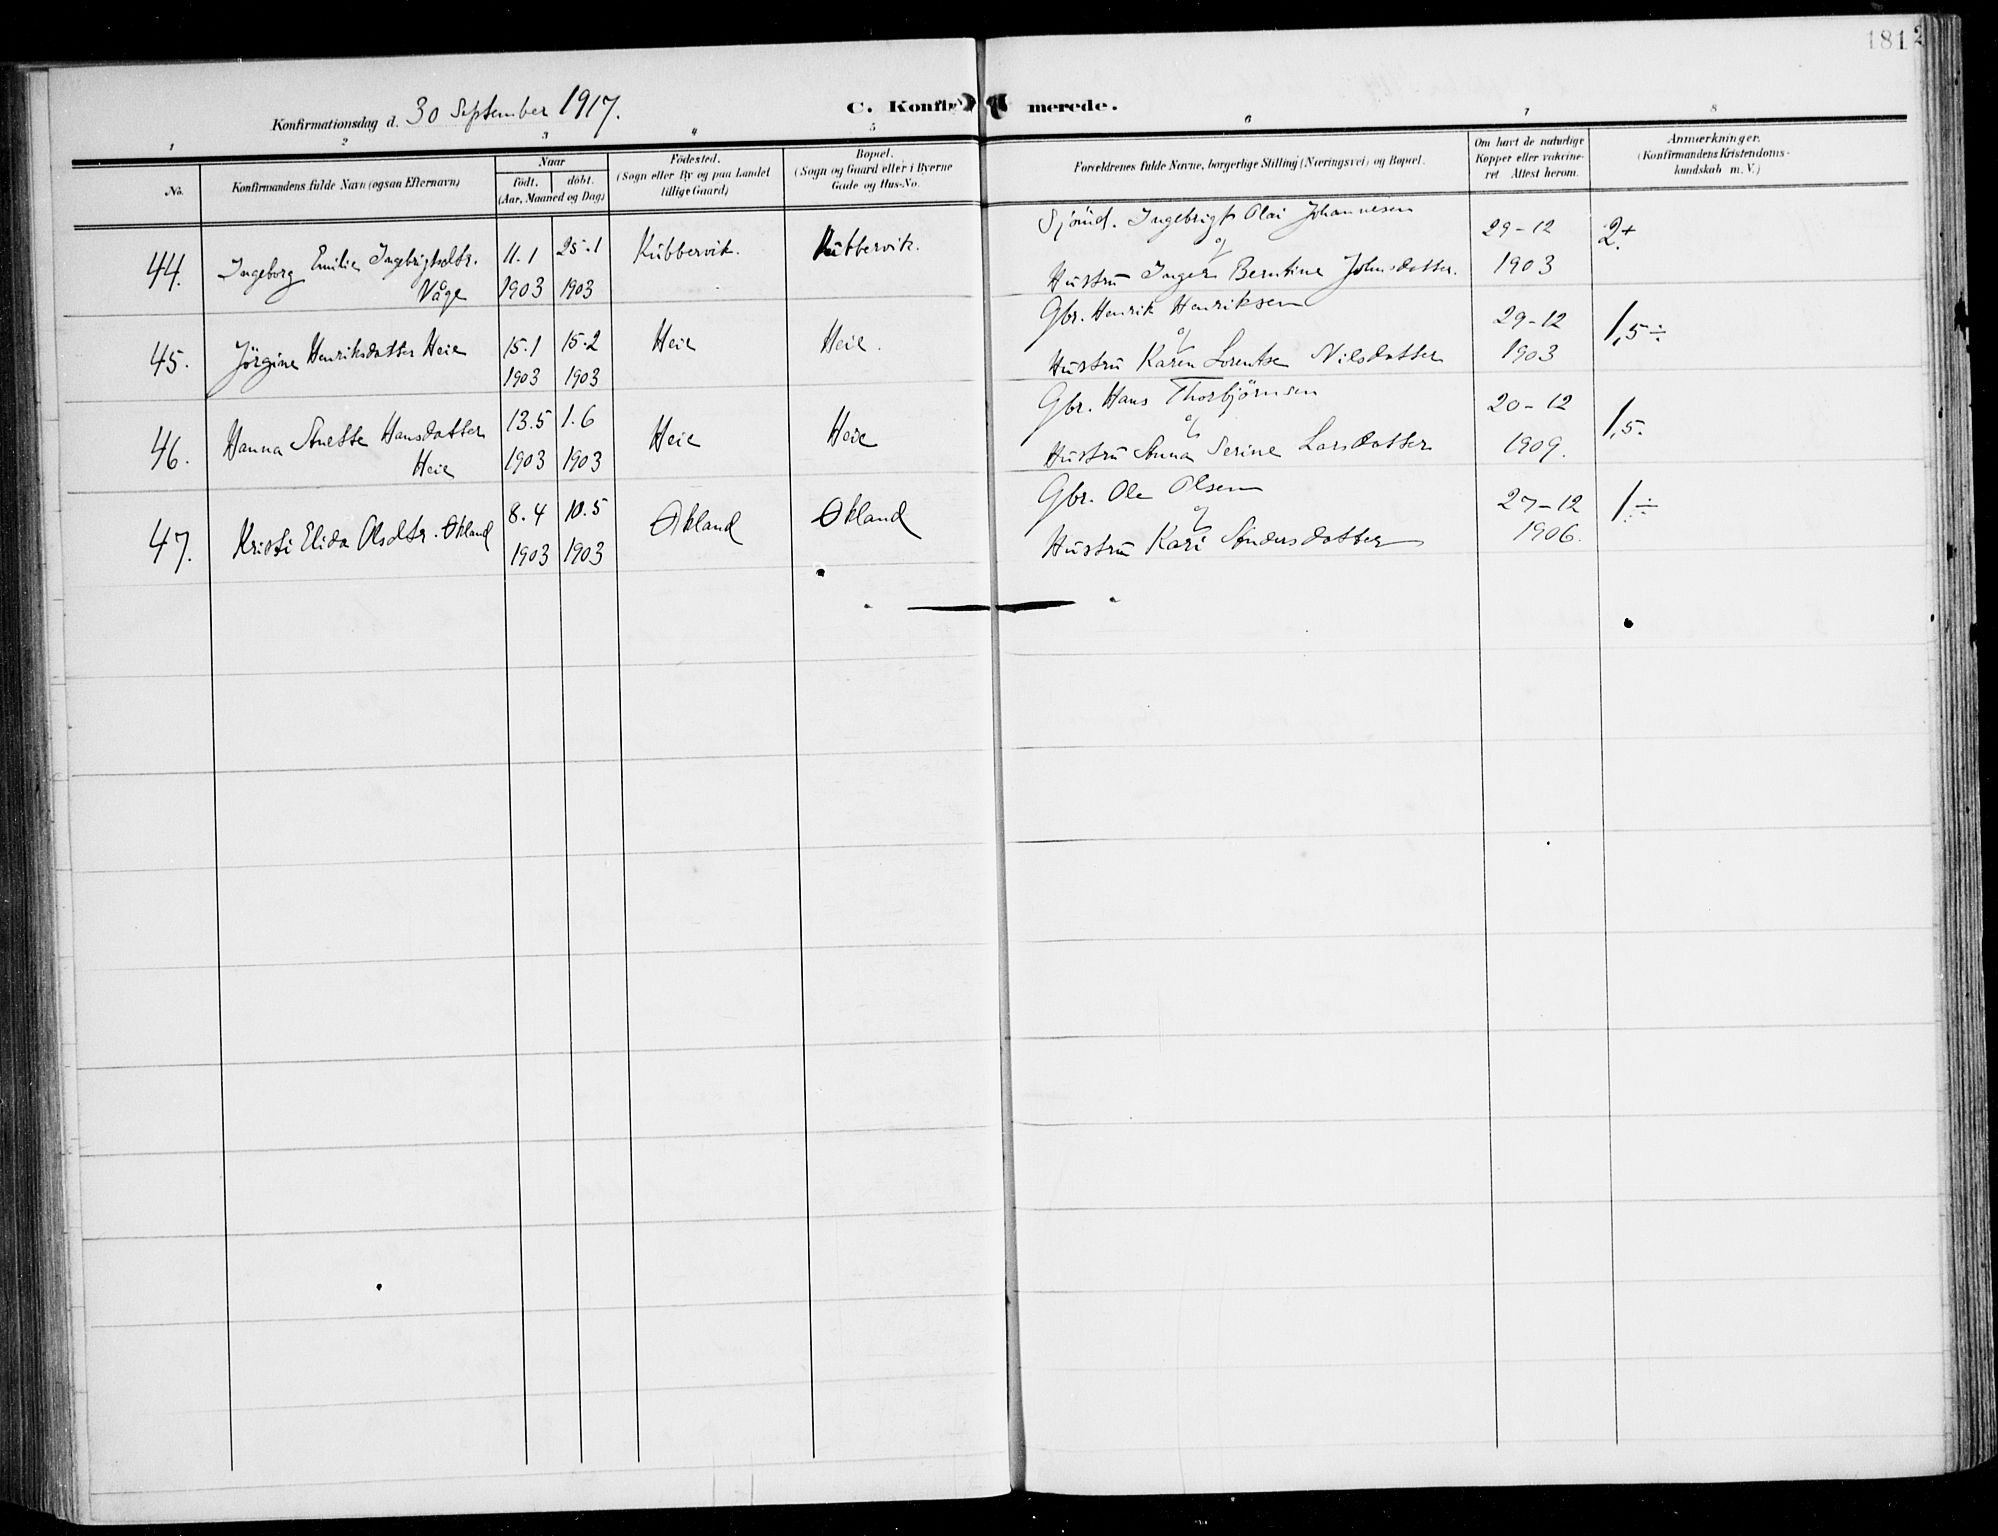 181
Konfirmationsdag d. 30 September 1917.
C. Konfir merede.
1 2 3 4 5 6 7 8
No. Konfirmandens fulde Navn (ogsaa Efternavn) Naar født. døbt. (Aar, Maaned og Dag) Fødested. (Sogn eller By og paa Landet tillige Gaard) Bopæl. (Sogn og Gaard eller i Byerne Gade og Hus-No. Forældrenes fulde Navne, borgerlige Stilling (Næringsvei) og Bopæl. Om havt de naturlige Kopper eller vakcineret. Attest herom. Anmærkninger. (Konfirmandens Kristendomskundskab m. V.)
44. Ingeborg Emilie Ingebrigtsdtr. 11.1 25.1 Kubbervik. Kubbervik. Sjömd. Ingebrigt Olai Johannesen 29-12 2+
Våge 1903 1903 og Hustru Inger Berntine Johnsdatter. 1903
45. Jörgine Henriksdatter Heie 15.1 15.2 Heie Heie. Gbr. Henrik Henriksen 29-12 1,5÷
1903 1903 og Hustru Karen Lorentse Nilsdatter 1903
46. Hanna Anette Hansdatter 13.5 1.6 Heie Heie Gbr. Hans Thorbjörnsen 20-12 1,5.
Heie 1903 1903 og Hustru Anna Serine Larsdatter 1909.
47. Kristi Elida Olsdtr. Økland 8.4 10.5 Økland Økland Gbr. Ole Olsen 27-12 1÷
1903 1903 og Hustru Kari Andersdatter 1906.